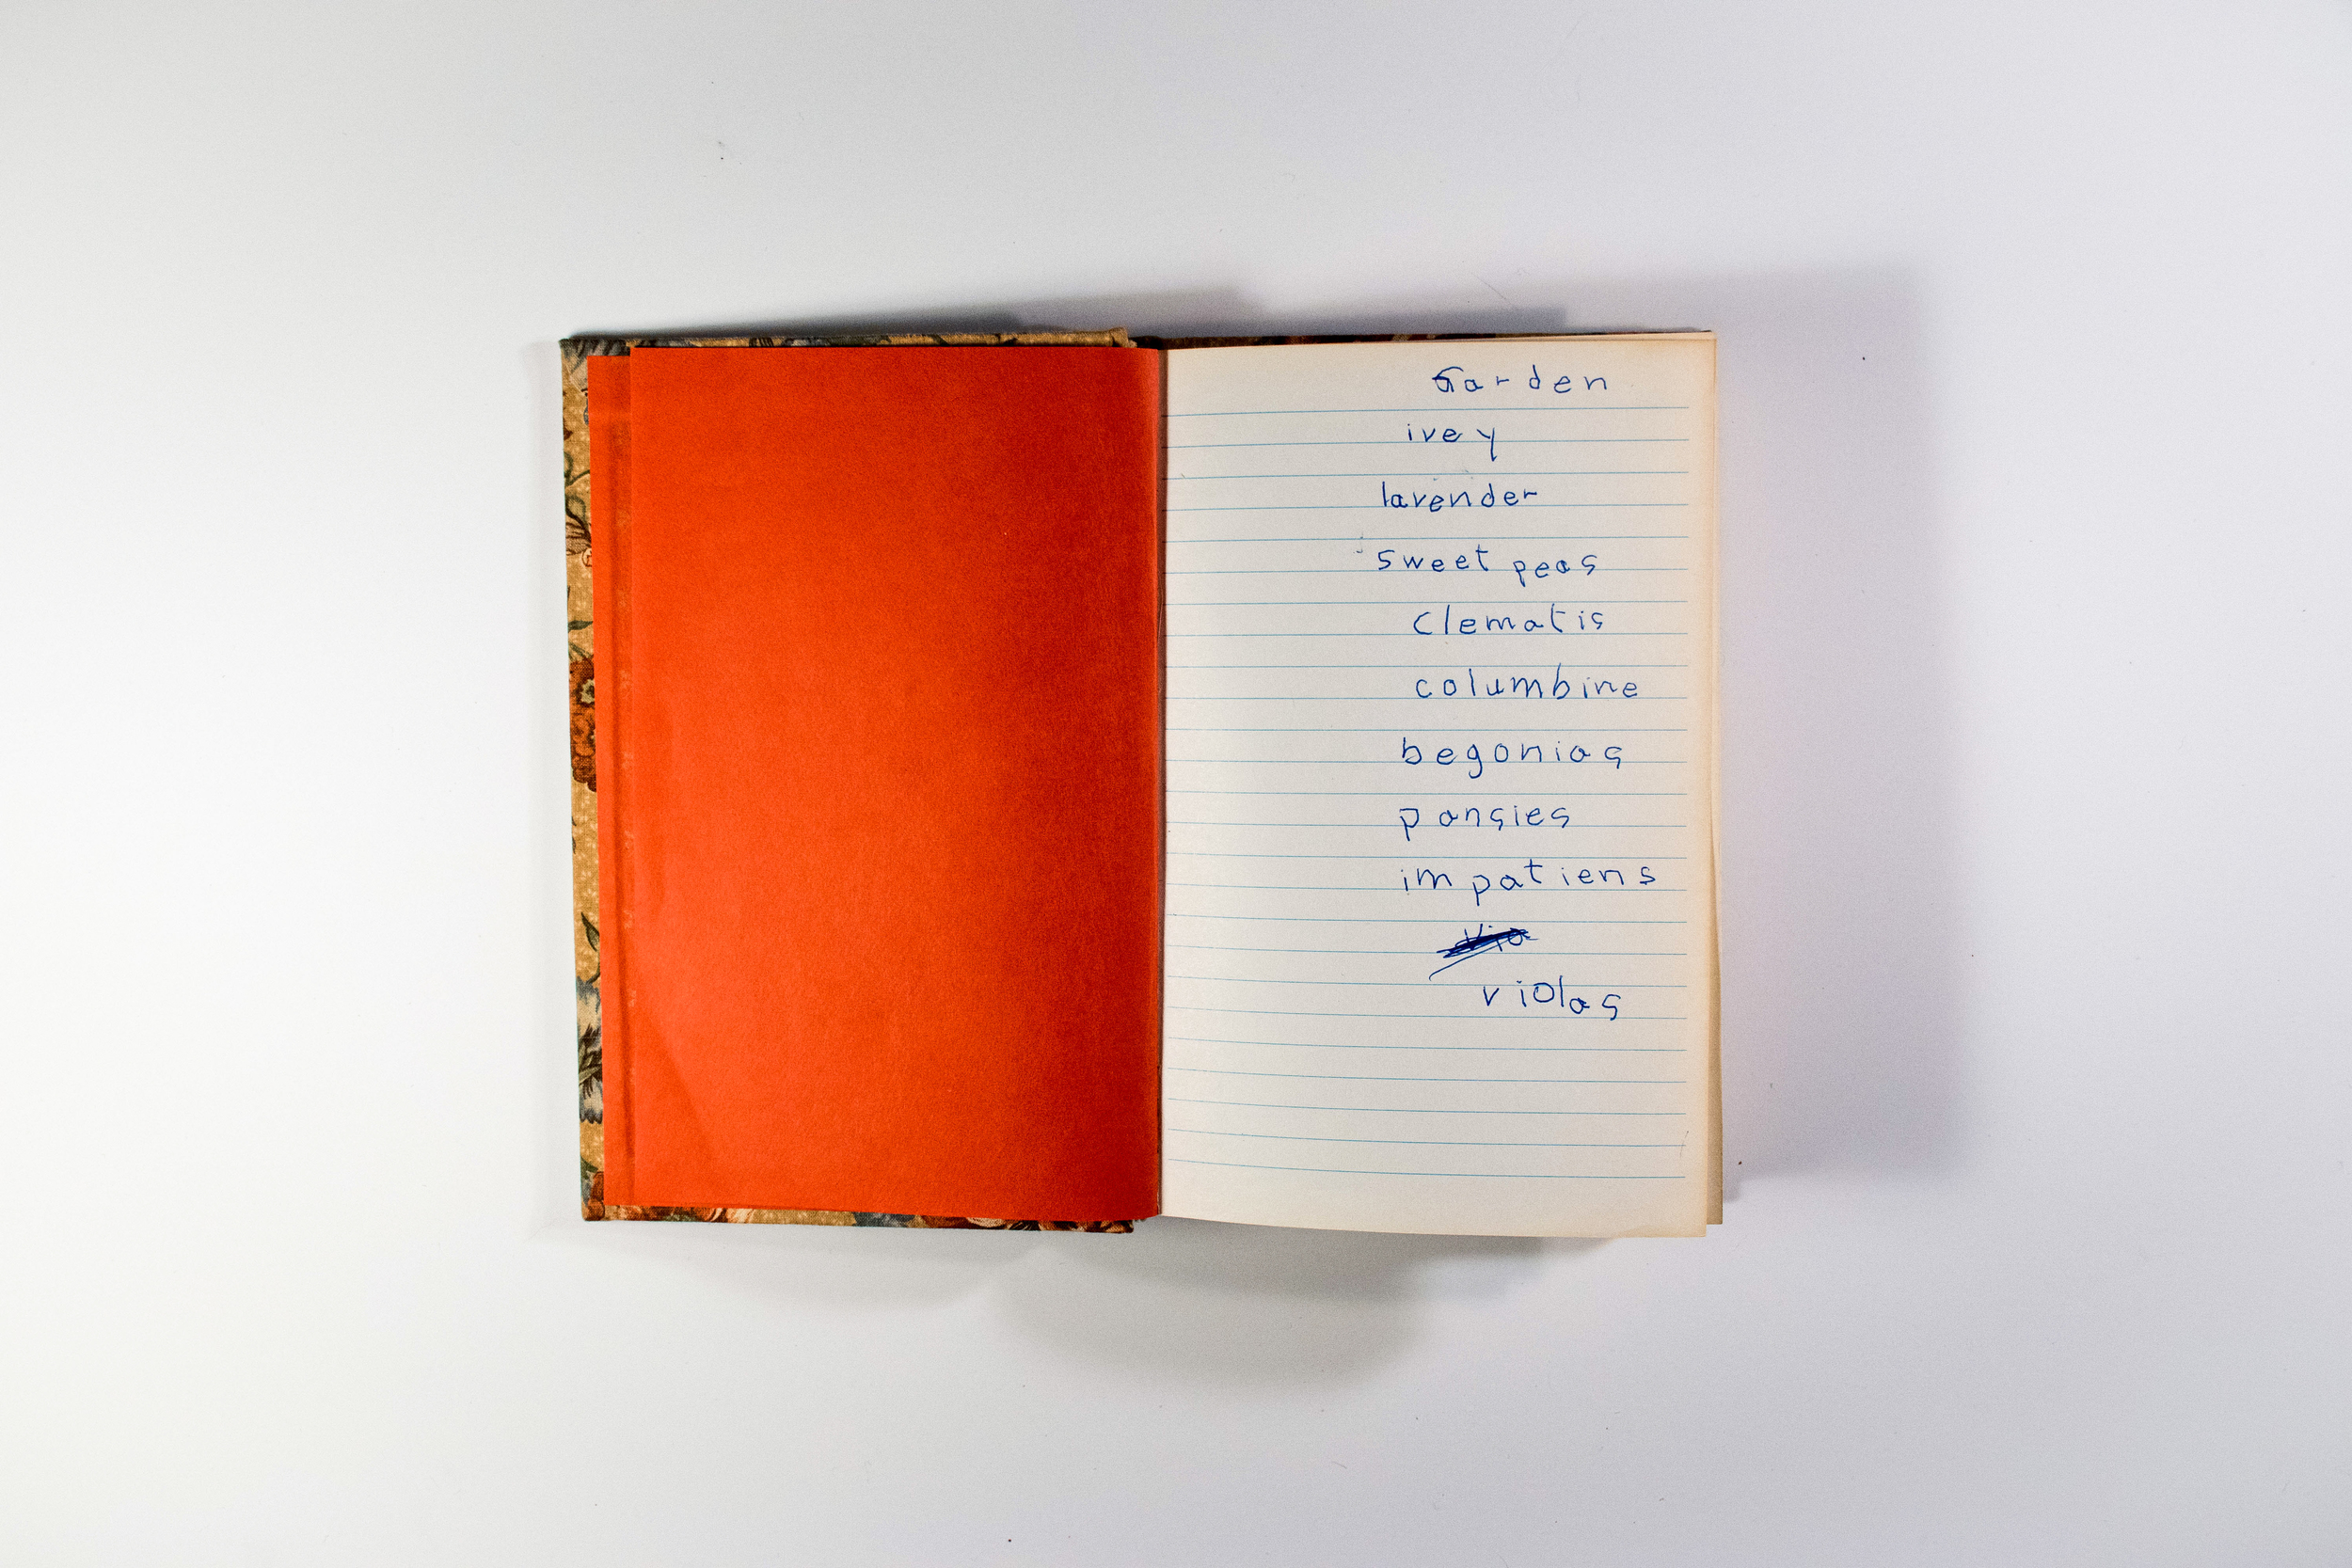 Garden
ivey
lavender
sweet peas
Clematis
columbine
begonias
pansies
impatiens
via
violas